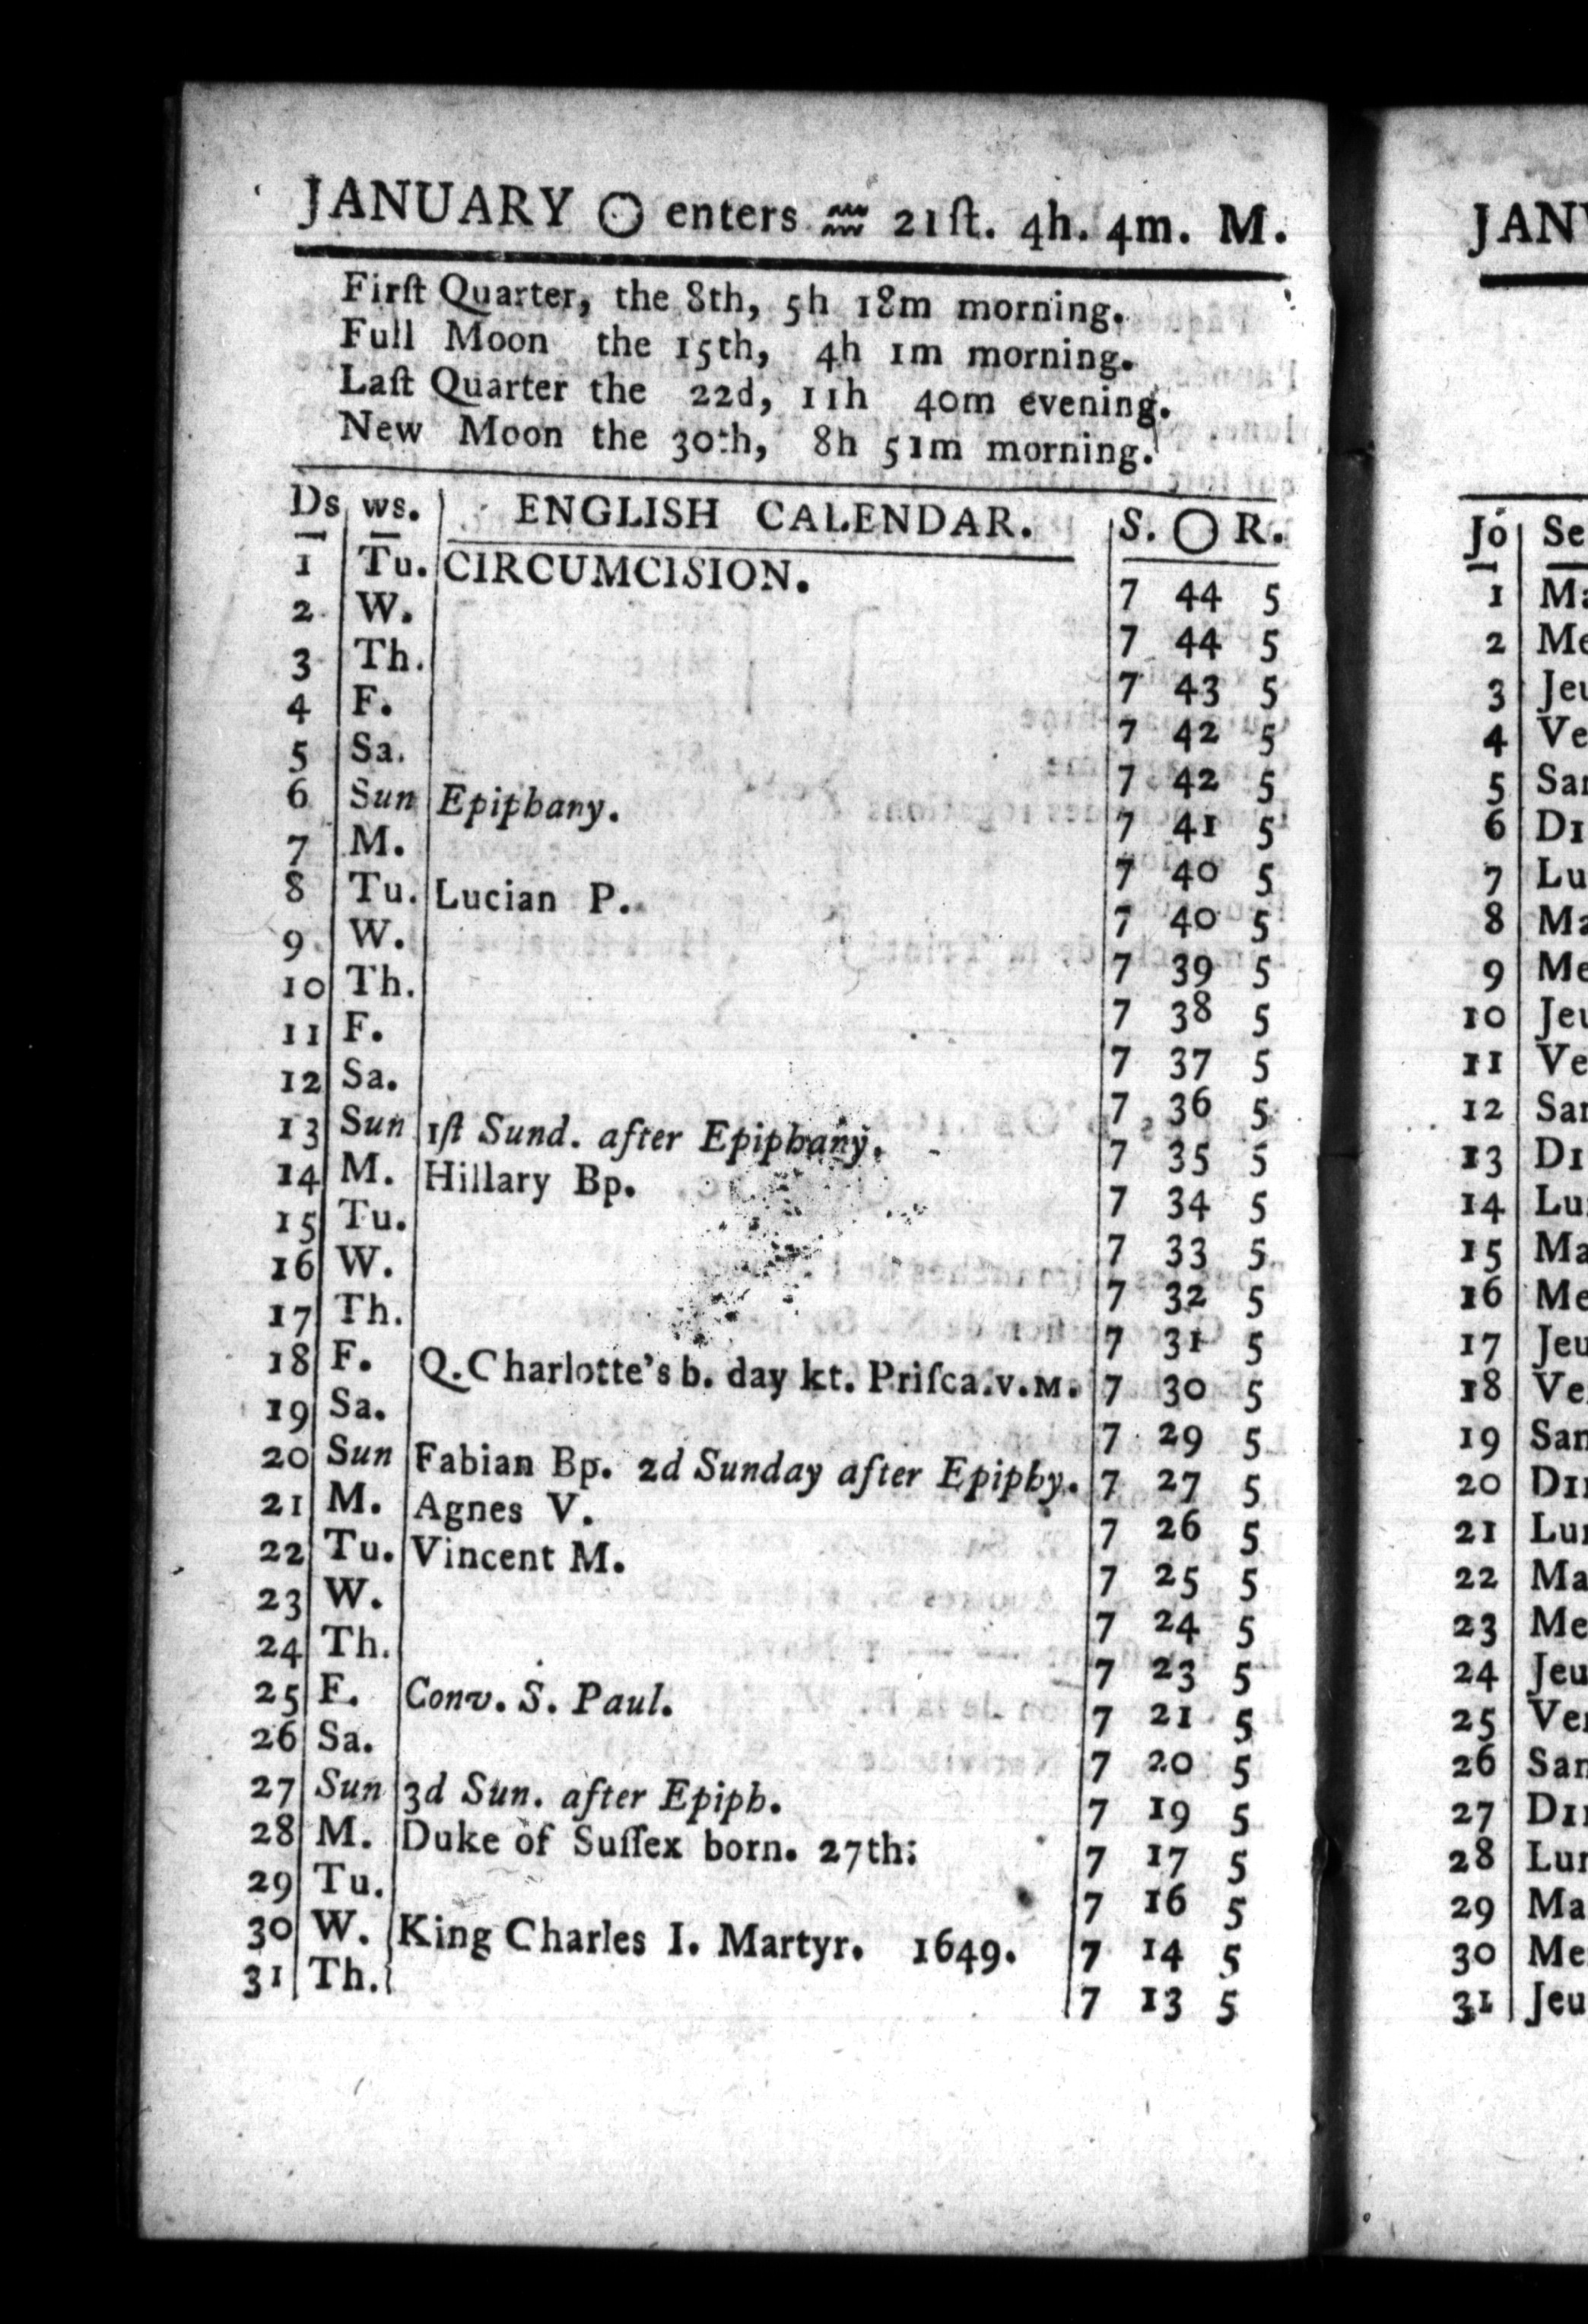 JANUARY ☉ enters ♒ 21ſt. 4h. 4m. M.
Firſt Quarter, the 8th, 5h 18m morning.
Full Moon the 15th, 4h 1m morning.
Laſt Quarter the 22d, 11h 40m evening.
New Moon the 30th, 8h 51m morning.
Ds ws. ENGLISH CALENDAR. S. ◯ R.
1 Tu. CIRCUMCISION. 7 44 5
2 W. 7 44 5
3 Th. 7 43 5
4 F. 7 42 5
5 Sa. 7 42 5
6 Sun Epiphany. 7 41 5
7 M. 7 40 5
8 Tu. Lucian P. 7 40 5
9 W. 7 39 5
10 Th. 7 38 5
11 F. 7 37 5
12 Sa. 7 36 5
13 Sun 1ſt Sund. after Epiphany. 7 35 5
14 M. Hillary Bp. 7 34 5
15 Tu. 7 33 5
16 W. 7 32 5
17 Th. 7 31 5
18 F. Q. Charlotte's b. day kt. Priſca. v. M. 7 30 5
19 Sa. 7 29 5
20 Sun Fabian Bp. 2d Sunday after Epiphy. 7 27 5
21 M. Agnes V. 7 26 5
22 Tu. Vincent M. 7 25 5
23 W. 7 24 5
24 Th. 7 23 5
25 F. Conv. S. Paul. 7 21 5
26 Sa. 7 20 5
27 Sun 3d Sun. after Epiph. 7 19 5
28 M. Duke of Suſſex born. 27th: 7 17 5
29 Tu. 7 16 5
30 W. King Charles I. Martyr. 1649. 7 14 5
31 Th. 7 13 5
JAN
Jo Se
1 Ma
2 Me
3 Jeu
4 Ve
5 Sam
6 DI
7 Lu
8 Ma
9 Me
10 Jeu
11 Ve
12 Sam
13 DI
14 Lu
15 Ma
16 Me
17 Jeu
18 Ve
19 Sam
20 DI
21 Lun
22 Ma
23 Me
24 Jeu
25 Ven
26 Sam
27 DI
28 Lun
29 Ma
30 Me
31 Jeu